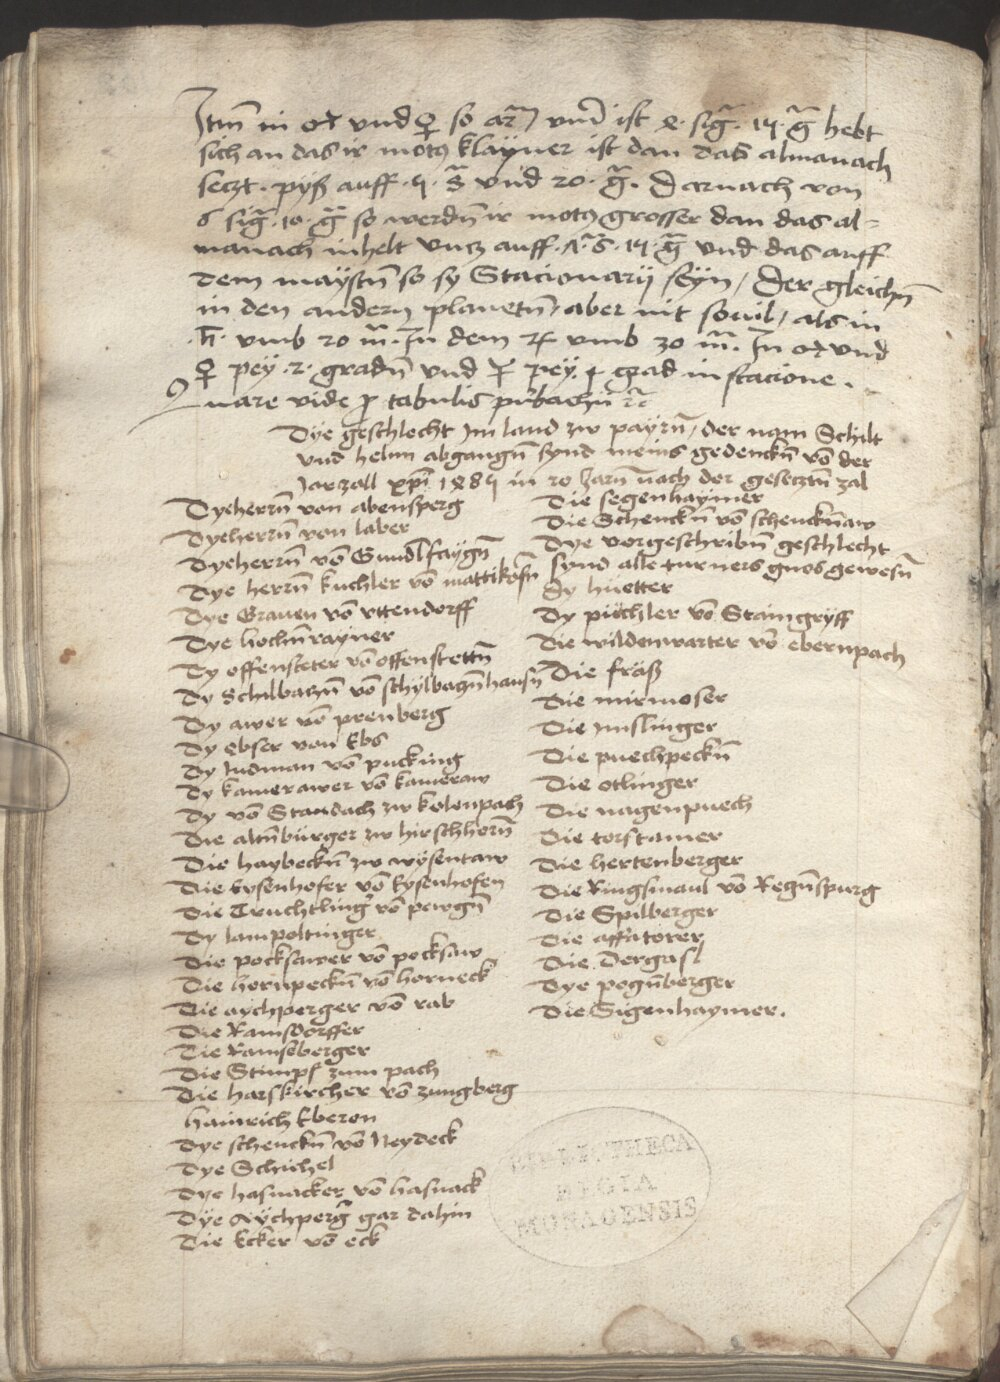 Itm̄ in ♂ vnd ♀ so ist sig̃ 15 g̃ hebt
sich an das ir motꝰ klayner ist dan das almanach
seczt · pyß auff · 5 · s̃ vnd 20 · g̃ · Darnach von
6 sig̃ · 10 · g̃ so werdn̄ ir motꝰ grosser dan das al-
manach inhelt vncz auff · s̃ · 15 · g̃ vnd das auff
dem maystn̄ so sy Stacionarij seyn / Der gleichn̄
in den andern planetn̄ / aber nit souil / als in
♄ · vmb 20 m̄ · In dem ♃ vmb 30 m̄ · In ♂ vnd
♀ pey · 2 · gradn̄ vnd ☿ pey grad in stacione ·
Quare vide tabulis purbachij
Dye geschlecht Im land zw payrn̄ / der nam Schilt
vnd helm abgangn̄ synd meins gedenckn̄ vō der
Jarzall xp̄i 1485 in 20 Jarn̄ nach der geseczten zal
Dyeherrn̄ von abensperg
Dyeherrn̄ von laber
Dyeherrn̄ vō Gundlfayḡn
Dye herrn̄ kuchler vō mattikofn̄
Dye Grauen vō vttendorff
Dye hochn̄rayner
Dy offensteter vō offenstettn̄
Dy Schilbachn̄ vō schylbachn̄hausn̄
Dy awer vō prenberg
Dy ebser von Ebs
Dy Judman vō pucking
Dy kamerawer vō kameraw
Dy vō Standach zw kolenpach
Die altn̄bürger zw hirschhorn̄
Die haybeckn̄ zw wysentaw
Die Eysenhofer vō Eysenhofen
Die Truchtling̃ vō pewgn̄
Dy lampoltinger
Die pocksawer vō pocksaw
Die hornpeckn̄ vō horneck
Die aychperger vō rab
Die Ramsdorffer
Die Ramsberger
Die Stumpf zum pach
Die harskircher vō zangberg
hainrich Eberon
Dye schenckn̄ vō Neydeck
Dye Schichel
Dye hasnacker vō hasnack
Dye aychperg̃ gar dahin
Die Ecker vō eck
Die segenhaymer
Die Schenckn̄ vō schenckn̄aw
Dye vorgeschribn̄ geschlecht
synd alle turners gnos gewesn̄
Dy huetter
Dy püchler vō Staingryff
Die wildenwarter vō ebernpach
Die fräß
Die mirmoser
Die Imslinger
Die puechpeckn̄
Die otlinger
Die nagenpuech
Die torstainer
Die hertenberger
Die Ringsmaul vō Regn̄spurg
Die Spilberger
Die affatorer
Die Dergasl
Dye pogn̄berger
Die Sigenhaymer.
BIBLIOTHECA
REGIA
MONACENSIS